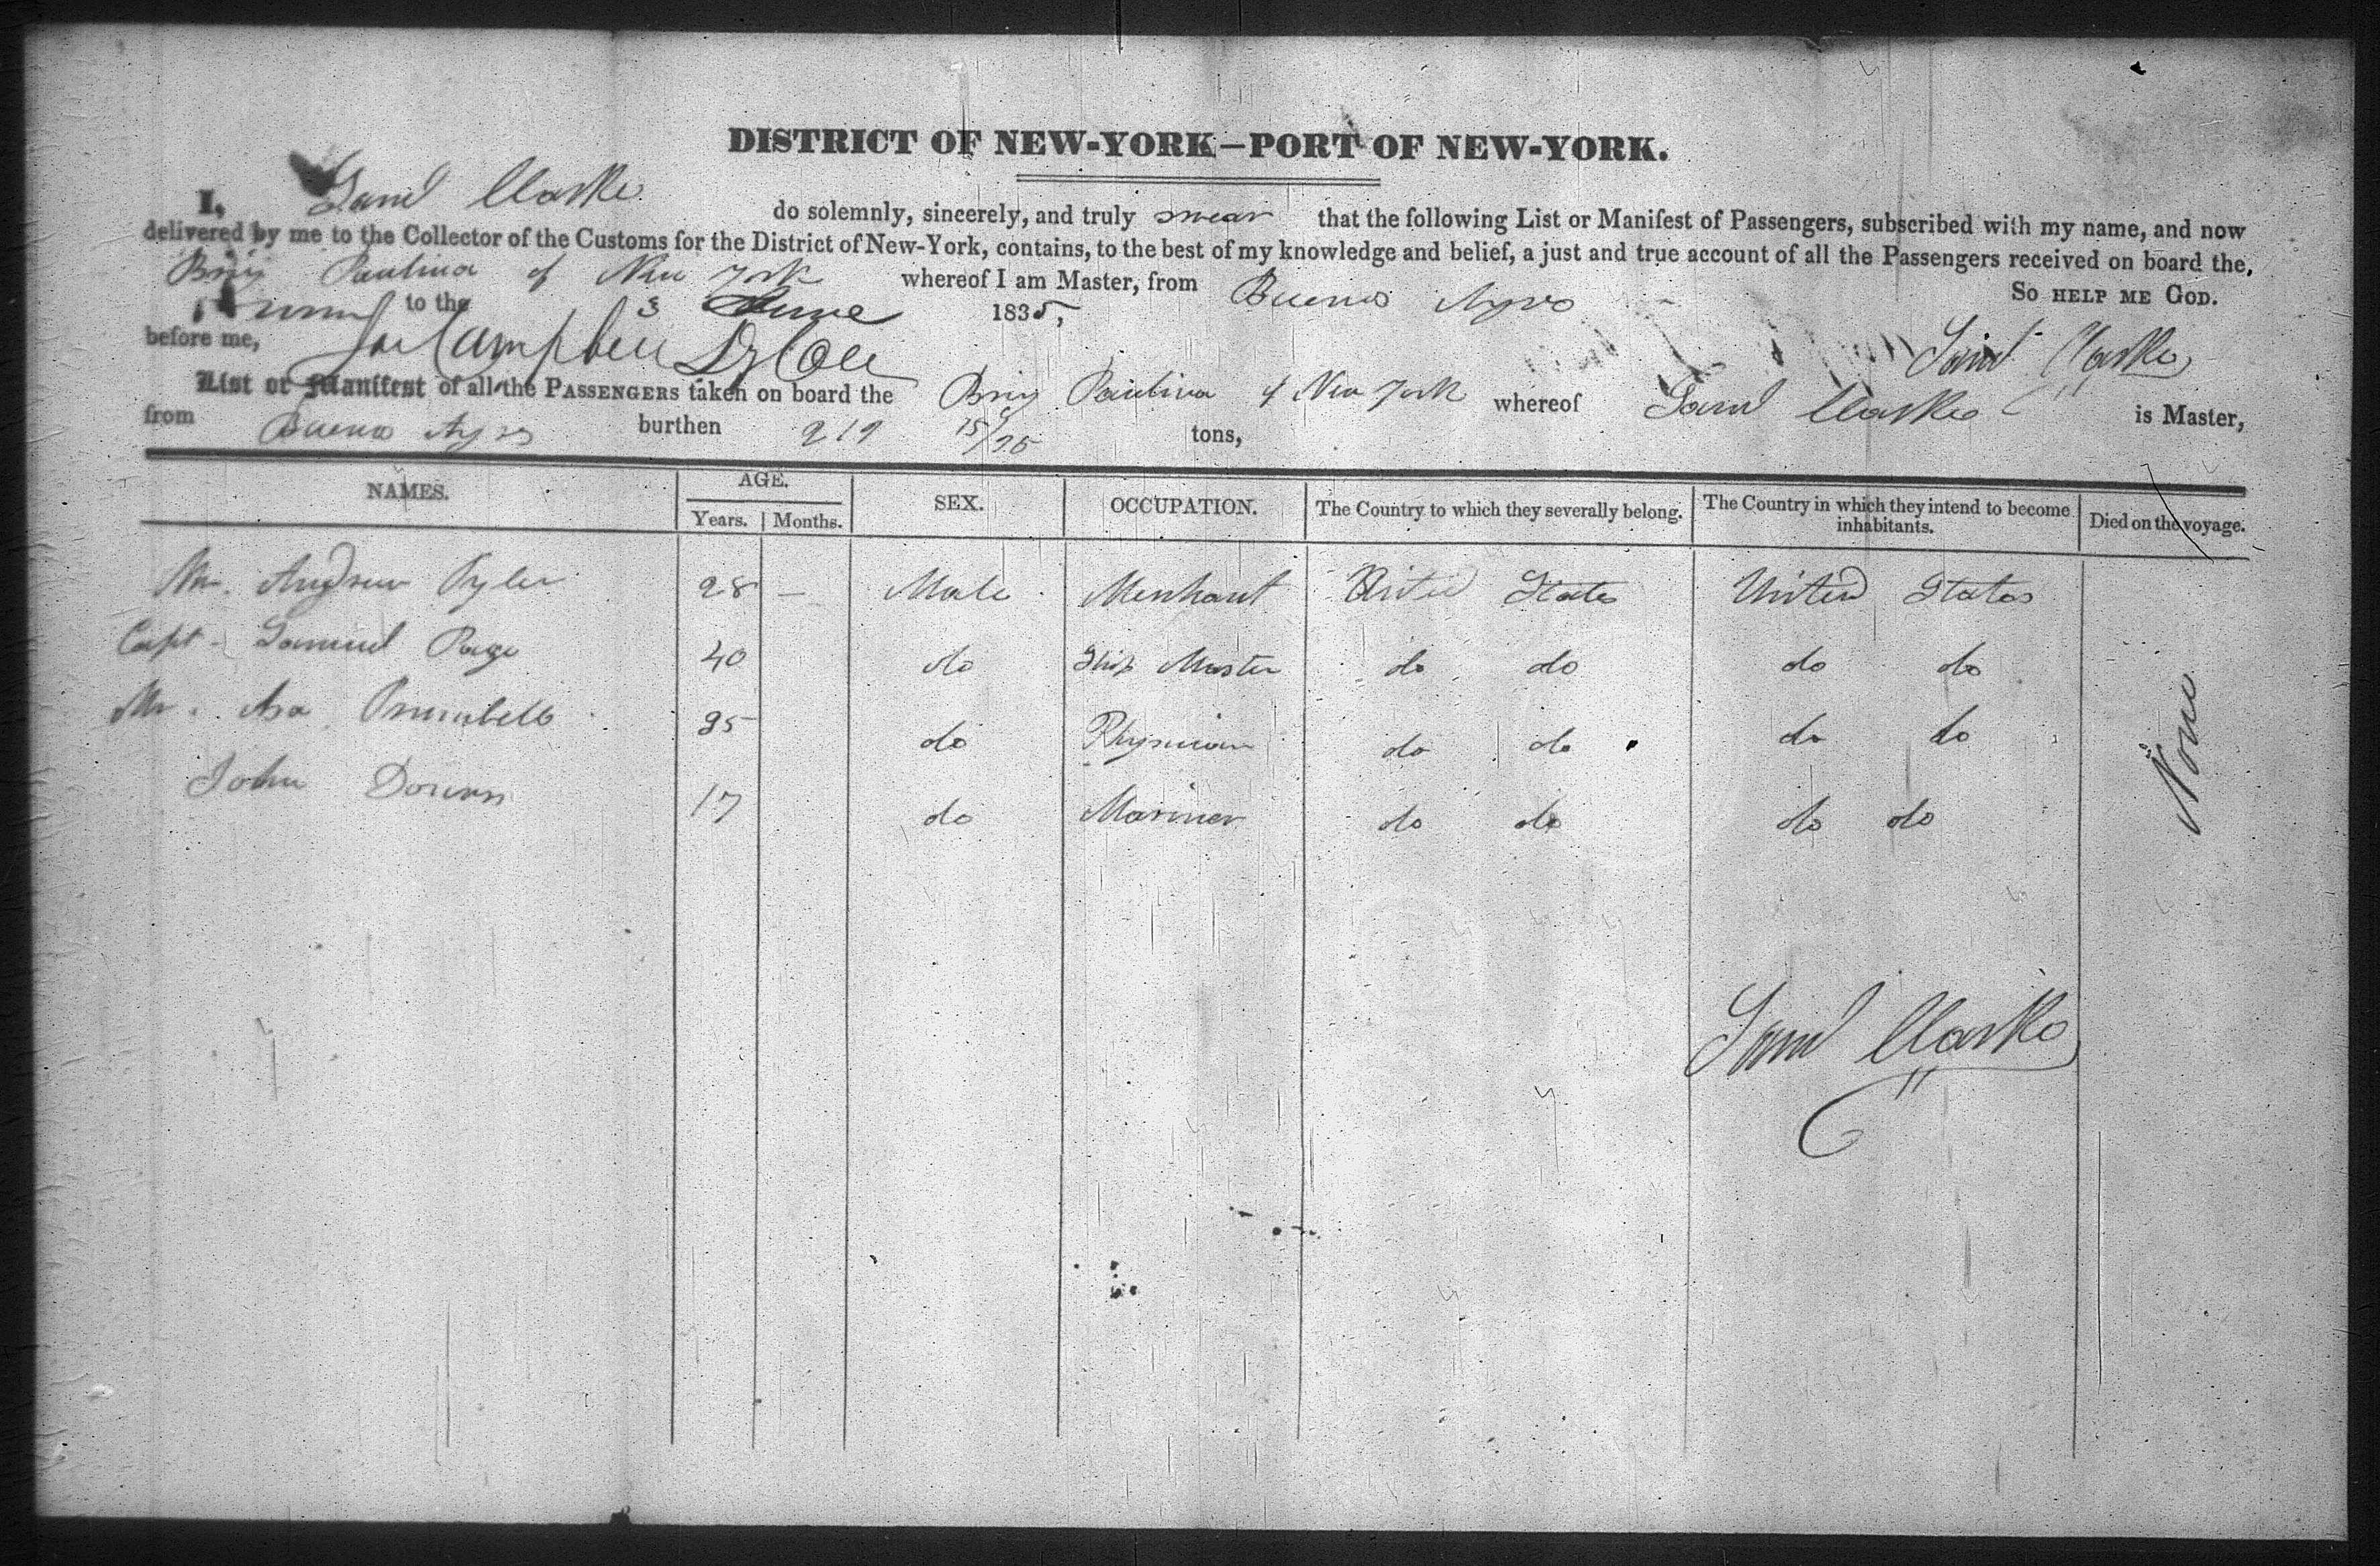 DISTRICT OF NEW-YORK—PORT OF NEW-YORK.
I, Saml Clarke do solemnly, sincerely, and truly swear that the following List or Manifest of Passengers, subscribed with my name, and now
delivered by me to the Collector of the Customs for the District of New-York, contains, to the best of my knowledge and belief, a just and true account of all the Passengers received on board the,
Brig Paulina of New York whereof I am Master, from Buenos Ayres
So HELP ME GOD.
to the 3 June 1835,
before me, Campbell Dy Coll Saml Clarke
List or Manifest of all the PASSENGERS taken on board the Brig Paulina of New York whereof Saml Clarke is Master,
from Buenos Ayres burthen 219 15/95 tons,
NAMES. AGE. SEX. OCCUPATION. The Country to which they severally belong. The Country in which they intend to become inhabitants. Died on the voyage.
Years. Months.
Mr. Andrew Tyler 28 — Male Merchant United States United States
Capt. Samuel Page 40 do Ship Master do do do do
Mr. Asa 35 do Physician do do do do
John Downs 17 do Mariner do do do do
None
Saml Clarke